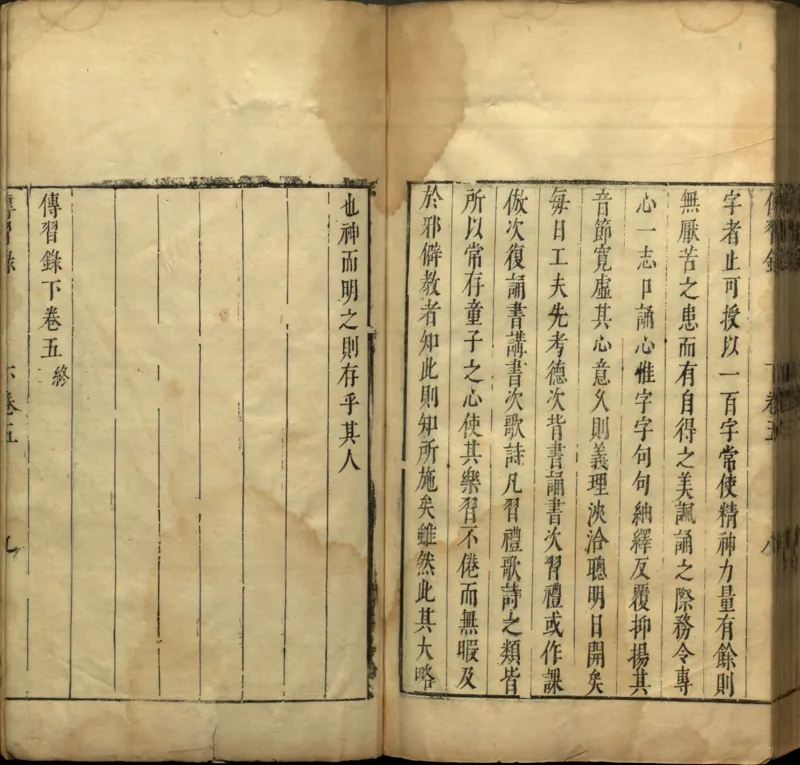 字者止可授以一百字常使精神力量有餘則
無厭苦之患而有自得之美諷誦之際務令專
心一志口誦心惟字字句句紬繹反覆抑揚其
音節寬虛其心意久則義理浹洽聰明日開矣
每日工夫先考德次背書誦書次習禮或作課
倣次復誦書講書次歌詩凡習禮歌詩之類皆
所以常存童子之心使其樂習不倦而無暇及
於邪僻教者知此則知所施矣雖然此其大略
也神而明之則存乎其人
傳習錄下卷五 終
傳習錄 下卷五 九